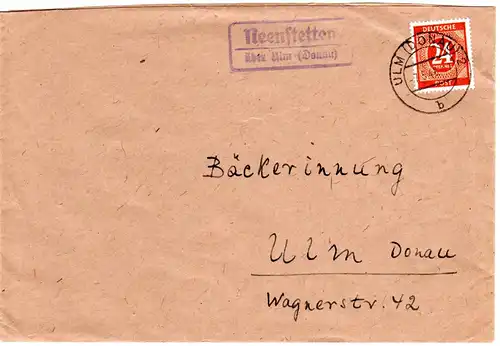 Neenstetten
über Ulm (Donau)
ULM (DONAU) 2
b
DEUTSCHE
24
POST
Bäckerinnung
Ulm Donau
Wagnerstr. 42